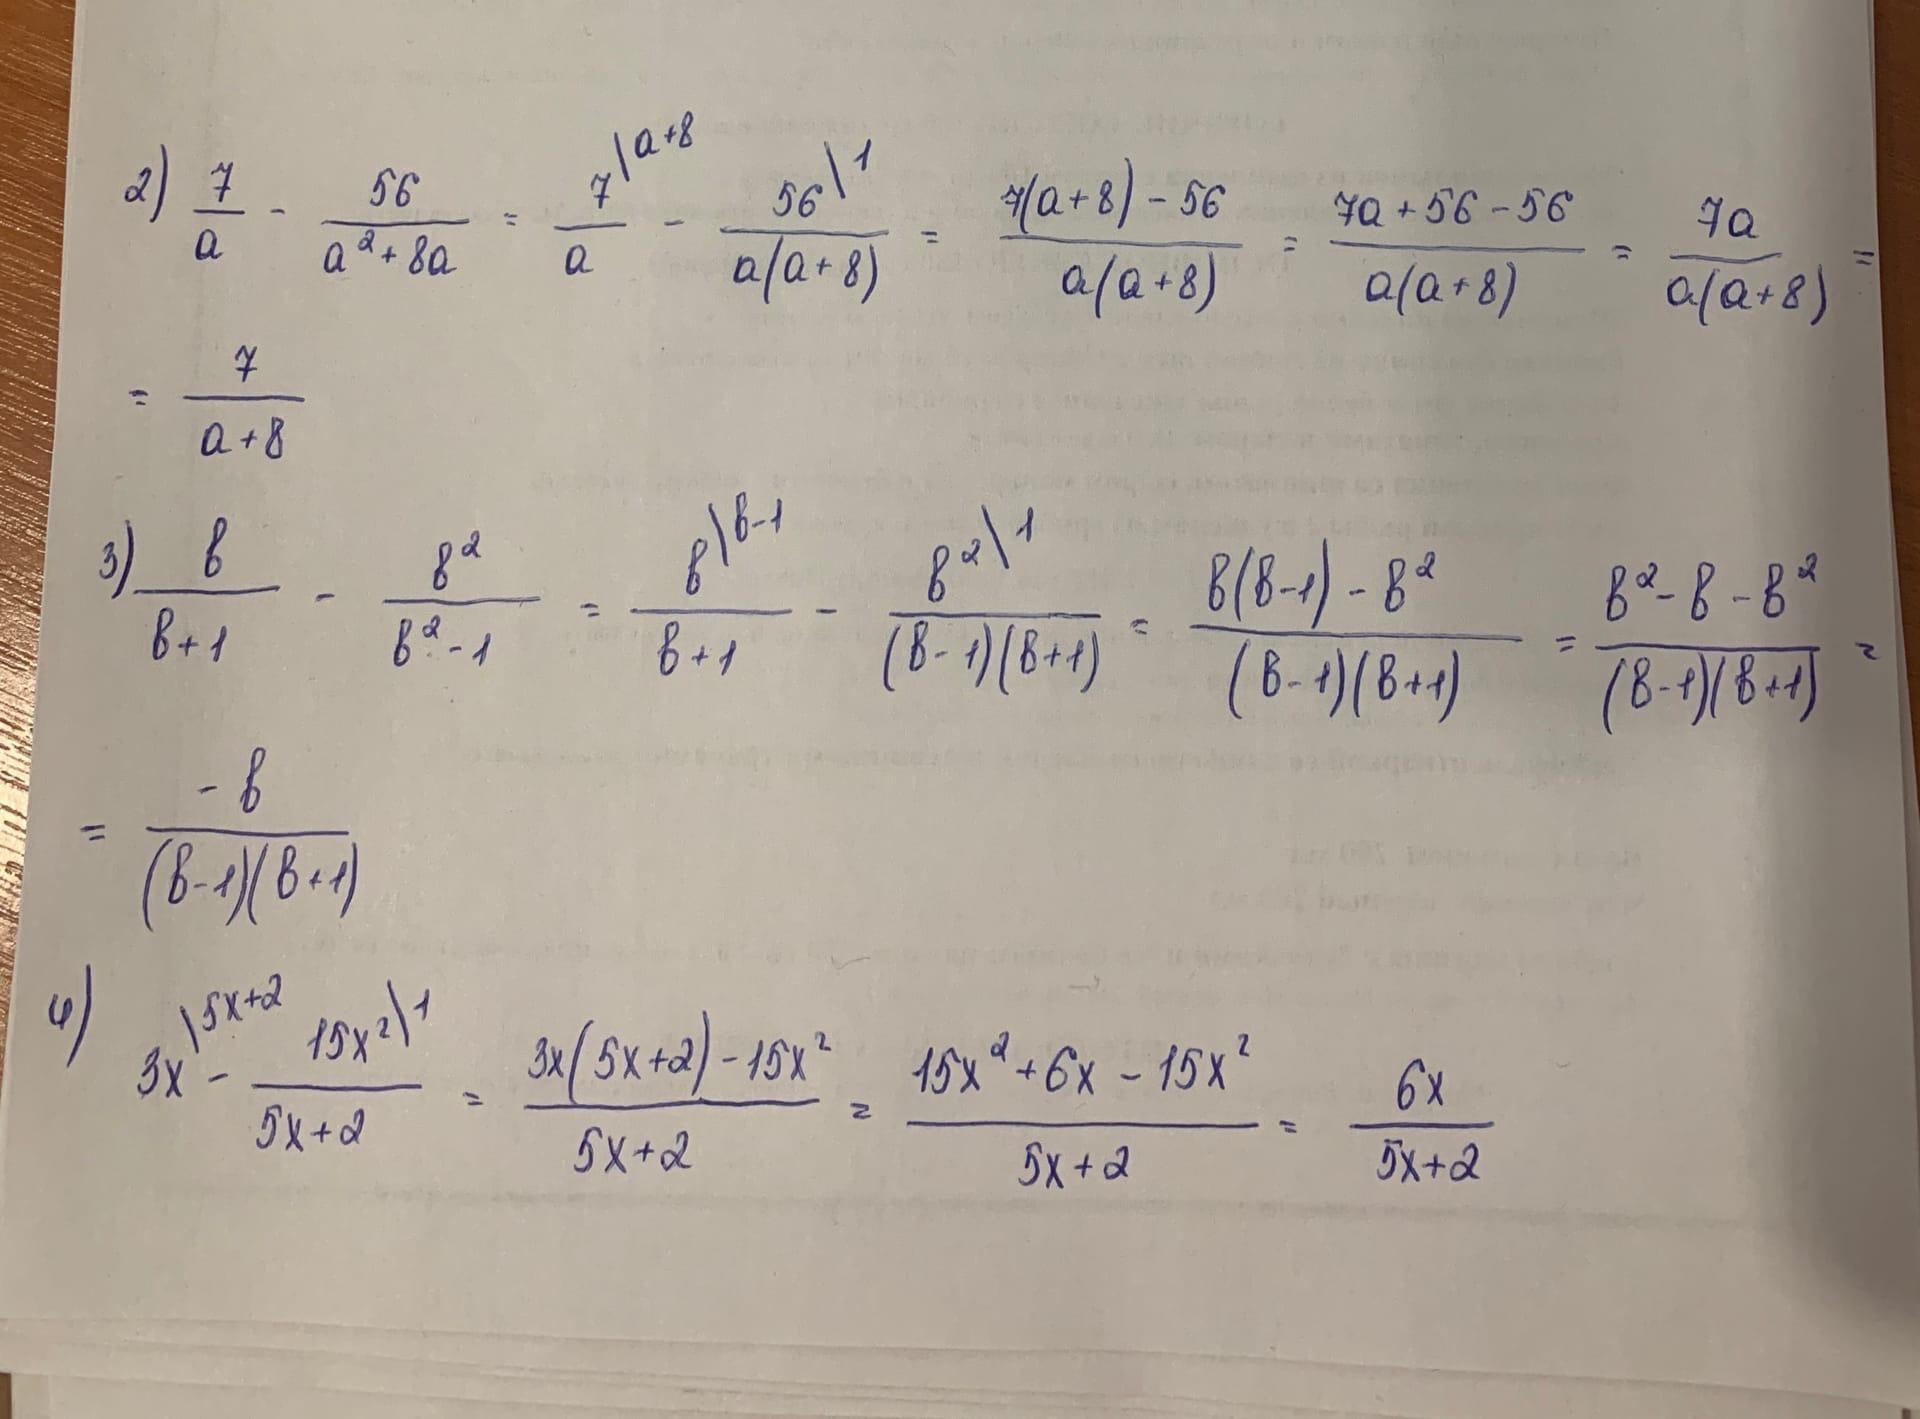 2) 7/a - 56/(a²+8a) = 7\a+8/a - 56\1/(a(a+8)) = (7(a+8)-56)/(a(a+8)) = (7a+56-56)/(a(a+8)) = 7a/(a(a+8)) =
= 7/(a+8)
3) в/(в+1) - в²/(в²-1) = в\в-1/(в+1) - в²\1/((в-1)(в+1)) = (в(в-1)-в²)/((в-1)(в+1)) = (в²-в-в²)/((в-1)(в+1)) =
= -в/((в-1)(в+1))
4) 3x\5x+2 - 15x²\1/(5x+2) = (3x(5x+2)-15x²)/(5x+2) = (15x²+6x-15x²)/(5x+2) = 6x/(5x+2)